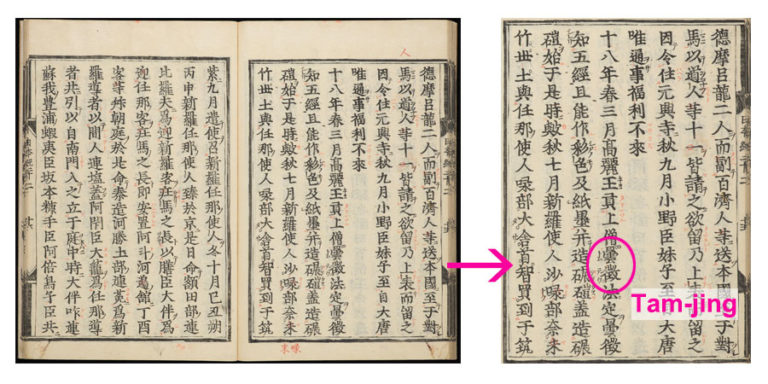 德摩呂龍二人而副百濟人等送本國至于對
馬以道人等十一皆請之欲留乃上表而留之
因令住元興寺秋九月小野臣妹子至自大唐
唯通事福利不來
十八年春三月高麗王貢上僧曇徵法定曇徵
知五經且能作彩色及紙墨幷造碾磑蓋造碾
磑始于是時歟秋七月新羅使人沙㖨部奈末
竹世士與任那使人㖨部大舍首智買到于筑
紫九月遣使召新羅任那使人冬十月己丑朔
丙申新羅任那使人臻於京是日命額田部連
比羅夫爲迎新羅客莊馬之長以膳臣大伴爲
迎任那客莊馬之長即安置阿斗河邊館丁酉
客等拜朝庭於是命秦造河勝土部連菟爲新
羅導者以間人連塩蓋阿閇臣大籠爲任那導
者共引以自南門入之立于庭中時大伴咋連
蘇我豊浦蝦夷臣坂本糠手臣阿倍鳥子臣共
德摩呂龍二人而副百濟人等送本國至于對
馬以道人等十一皆請之欲留乃上表而留之
因令住元興寺秋九月小野臣妹子至自大唐
唯通事福利不來
十八年春三月高麗王貢上僧曇徵法定曇徵
知五經且能作彩色及紙墨幷造碾磑蓋造碾
磑始于是時歟秋七月新羅使人沙㖨部奈末
竹世士與任那使人㖨部大舍首智買到于筑
Tam-jing